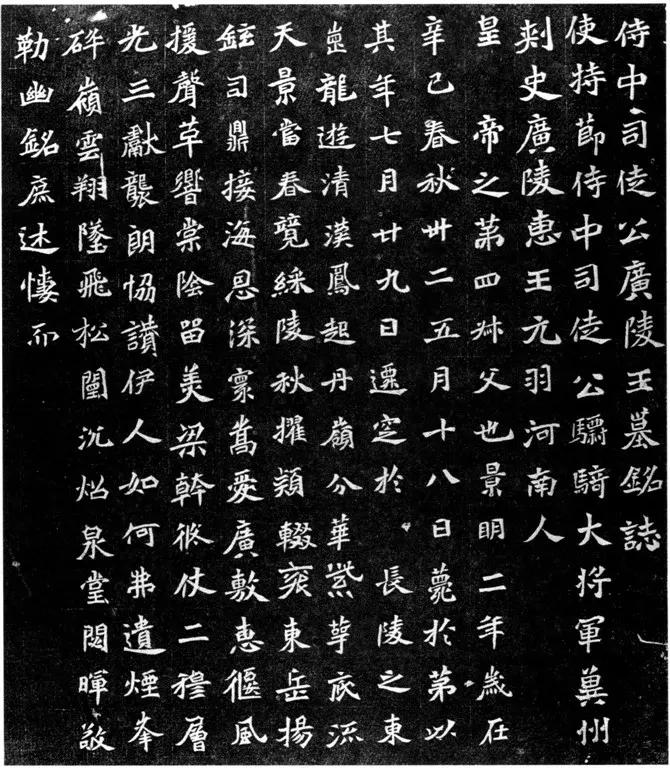 侍中司徒公廣陵王墓銘誌
使持節侍中司徒公驃騎大将軍冀州
刾史廣陵惠王元羽河南人
皇帝之第四叔父也景明二年歲在
辛巳春秋卅二五月十八日薨於第以
其年七月廿九日遷窆於長陵之東
崗龍遊清漢鳳起丹嶺分華紫萼底流
天景當春競綵陵秋擢穎輟袞東岳揚
鉉司鼎接海恩深寰嵩愛廣敷惠偃風
援聲草響棠陰留美梁幹攸仗二穆層
光三獻襲朗協讚伊人如何弗遺煙峯
碎嶺雲翔墜飛松闈沉炤泉堂閟暉敬
勒幽銘庶述悽而